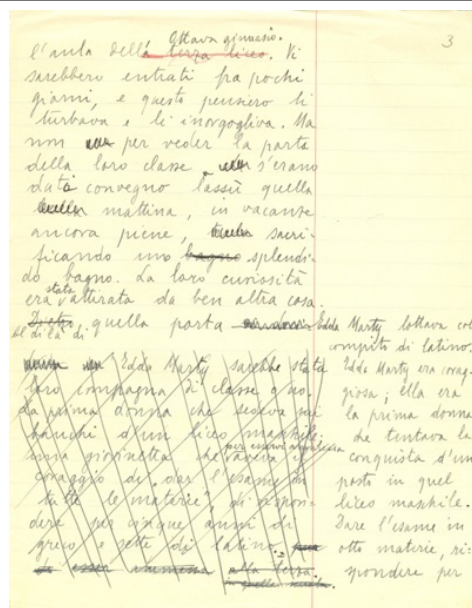 3
Ottava ginnasio.
l'aula della terza liceo. Vi
sarebbero entrati fra pochi
giorni, e questo pensiero li
turbava e li inorgogliva. Ma
non per veder la porta
della loro classe s'erano
dato convegno lassù quella
mattina, in vacanze
ancora piene, sacri-
ficando uno bagno splendi-
do bagno. La loro curiosità
stata
era attirata da ben altra cosa.
Dietro quella porta
al di là di
Edda Marty sarebbe stata
loro compagna di classe
La prima donna che sedeva nei
banchi d'un liceo maschile;
una giovinetta che aveva il
per esservi ammessa
coraggio di dar l'esame in
tutte le materie, di rispon-
dere per cinque anni di
greco e sette di latino.
essere ammessa alla terza
in quella scuola.
Edda Marty lottava col
compito di latino.
Edda Marty era corag-
giosa; Ella era
la prima donna
che tentava la
conquista d'un
posto in quel
liceo maschile.
Dare l'esame in
otto materie, ri-
spondere per